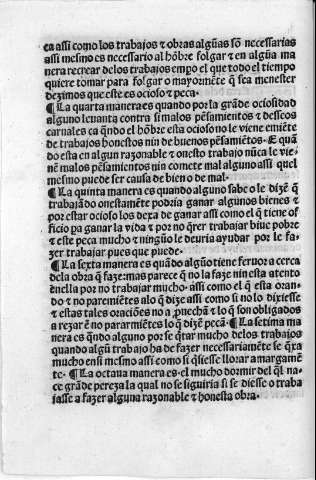 ca assi como los trabajos ⁊ obras algũas sõ necessarias
assi mesmo es necessario al hõbre folgar ⁊ en algũa ma
nera recrear delos trabajos empo el que todo el tiempo
quiere tomar para folgar o mayormẽte q̃ sea menester
dezimos que este es ocioso ⁊ peca.
¶ La quarta manera es quando por la grãde ociosidad
alguno leuanta contra si malos pẽsamientos ⁊ desseos
carnales ca q̃ndo el hõbre esta ocioso no le viene emiẽte
de trabajos honestos nin de buenos pẽsamiẽtos. E quã
do esta en algun razonable ⁊ onesto trabajo nũca le vie
nẽ malos pẽsamientos nin comete mal alguno assi quel
mesmo puede ser causa de bien o de mal.
¶ La quinta manera es quando alguno sabe o le dizẽ q̃
trabajãdo onestamẽte podria ganar algunos bienes ⁊
por estar ocioso los dexa de ganar assi como el q̃ tiene of
ficio pa ganar la vida ⁊ por no q̃rer trabajar biue pobre
⁊ este peca mucho ⁊ ningũo le deuria ayudar por le fa
zer trabajar pues que puede.
¶ La sexta manera es quãdo algũo tiene feruor a cerca
dela obra q̃ faze mas parece q̃ no la faze nin esta atento
enella por no trabajar mucho. assi como el q̃ esta oran
do ⁊ no paremiẽtes alo q̃ dize assi como si no lo dixiesse
⁊ estas tales oraciões no a ꝓuechã ⁊ lo q̃ son obligados
a rezar ẽ no pararmiẽtes lo q̃ dizẽ pecã. ¶ La setima ma
nera es q̃ndo alguno por se q̃tar mucho delos trabajos
quando algũ trabajo ha de fazer necessariamẽte se q̃xa
mucho en si mesmo assi como si q̃siesse llorar amargamẽ
te. ¶ La octaua manera es. el mucho dormir del q̃l na
ce grãde pereza la qual no se siguiria si se diesse o traba
jasse a fazer alguna razonable ⁊ honesta obra.